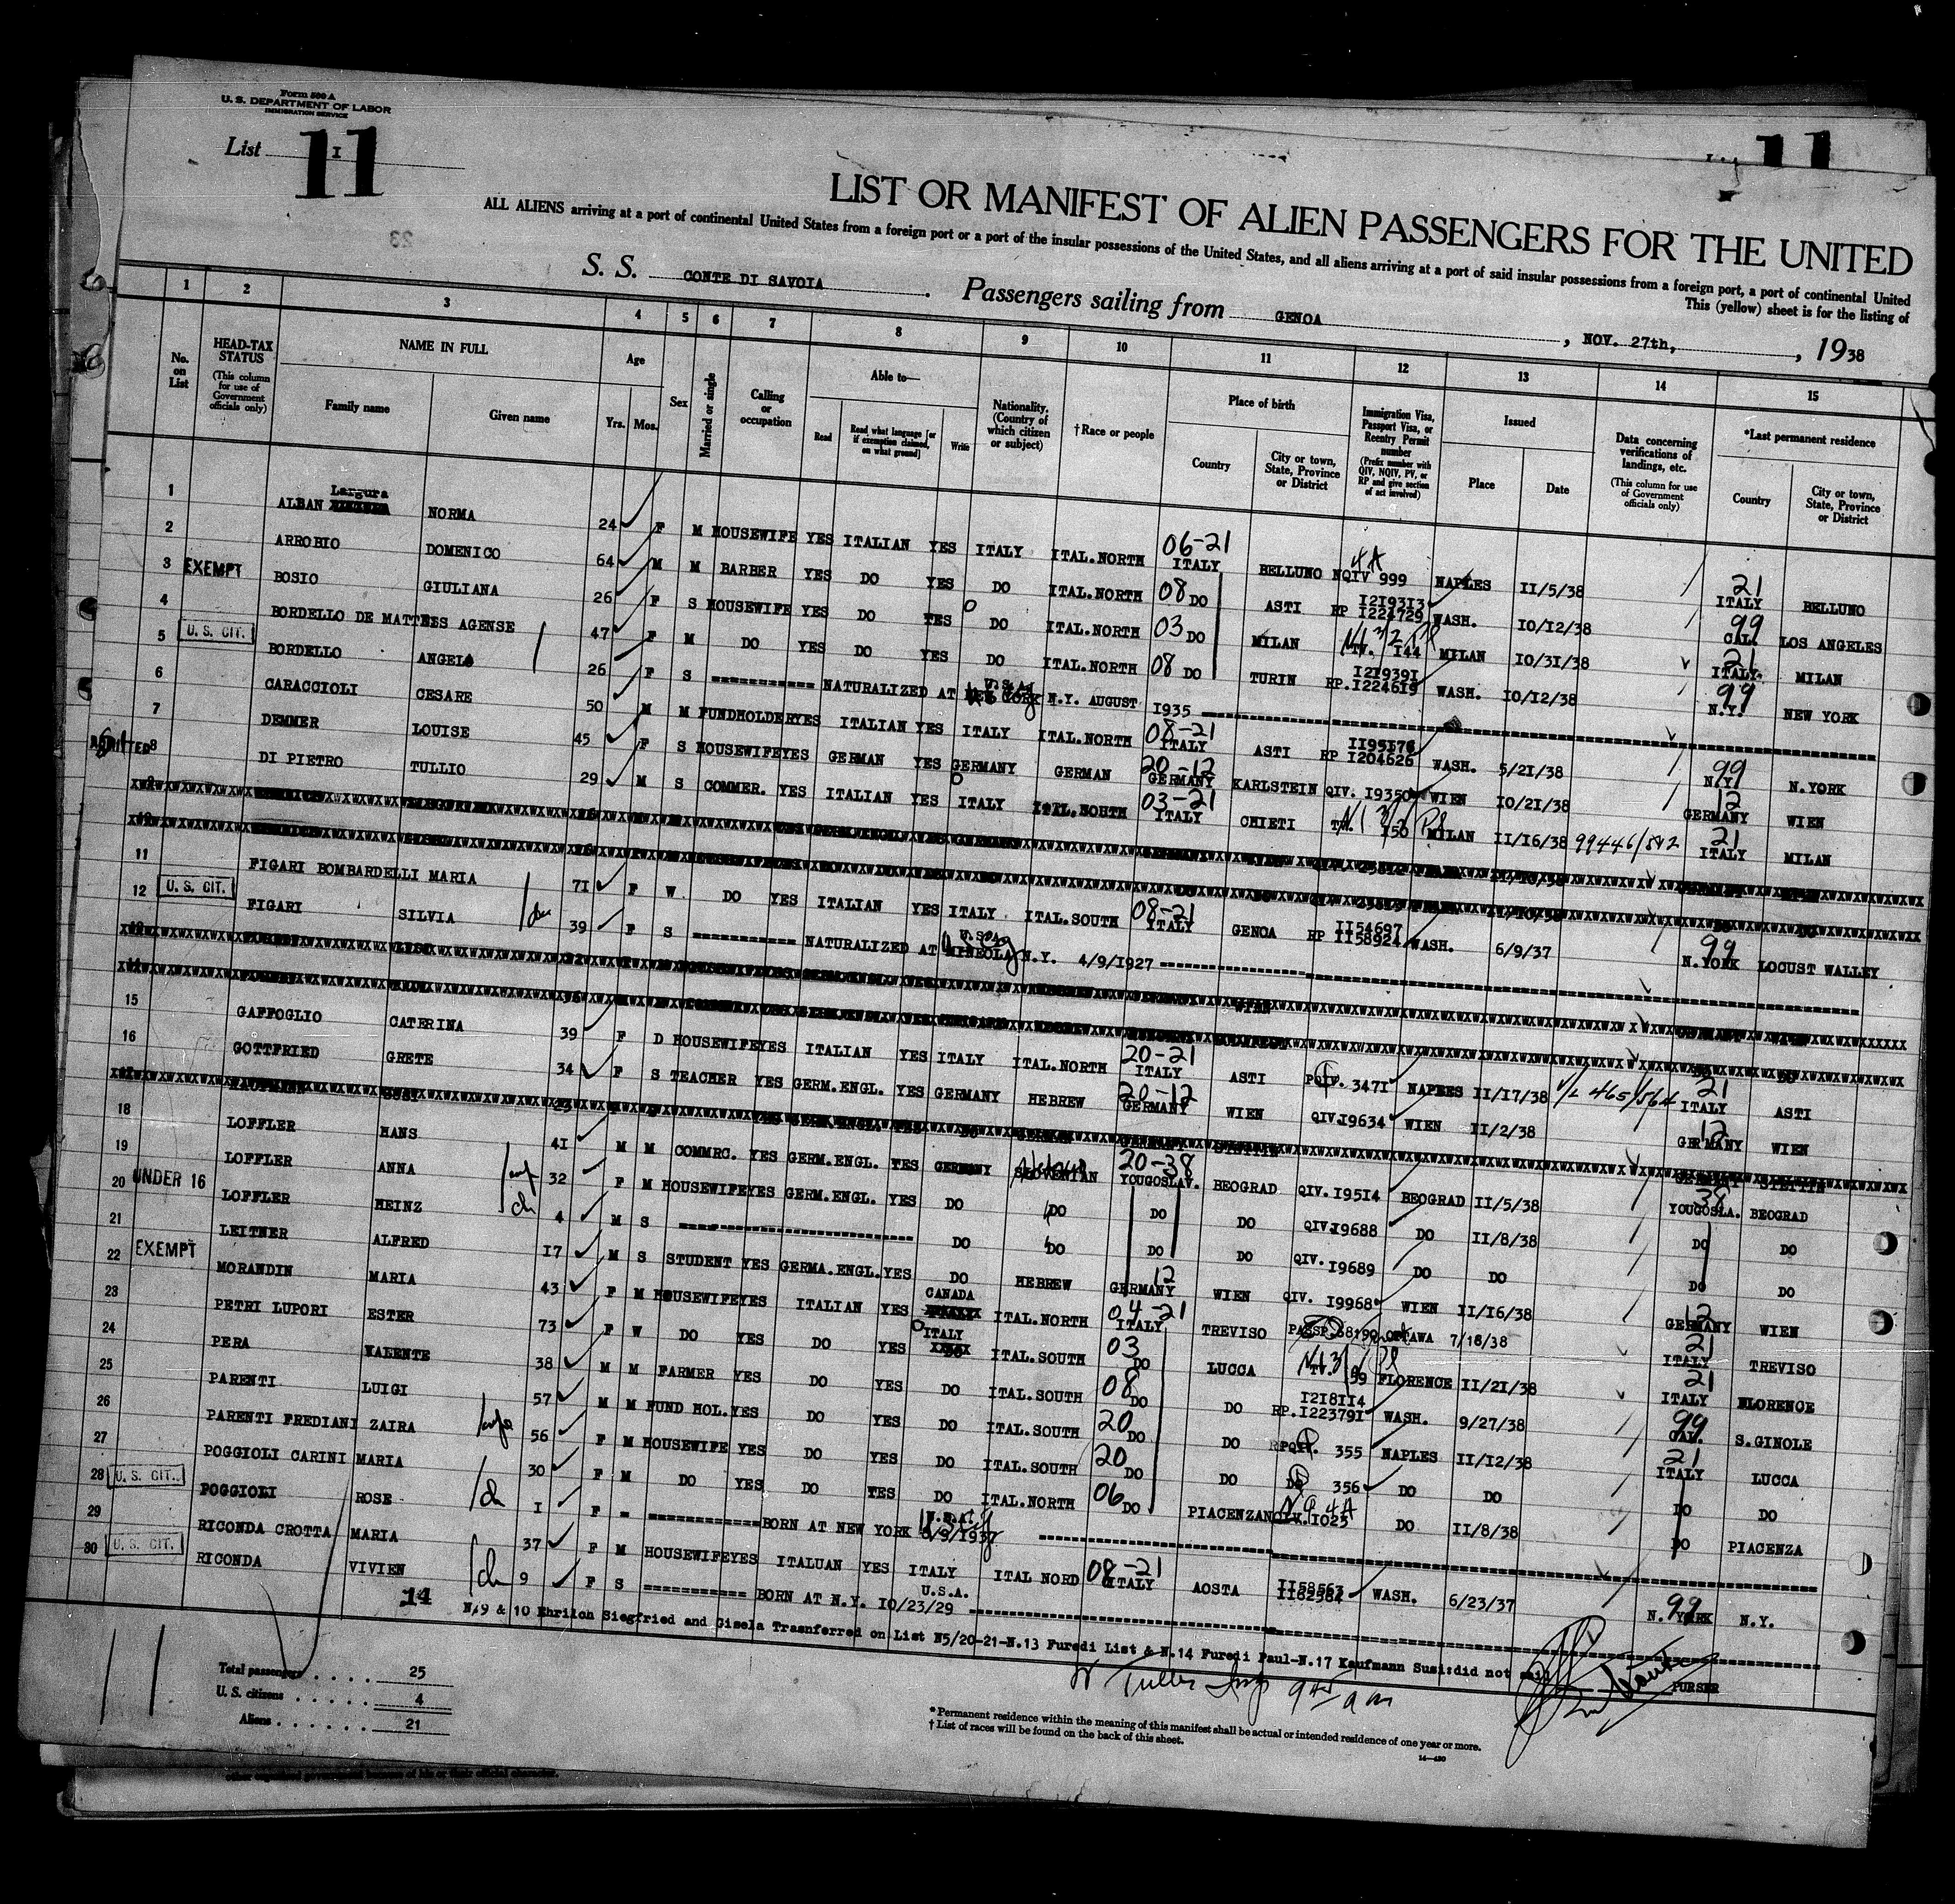 Form 500 A
U. S. DEPARTMENT OF LABOR
IMMIGRATION SERVICE
List I 11
11
LIST OR MANIFEST OF ALIEN PASSENGERS FOR THE UNITED
ALL ALIENS arriving at a port of continental United States from a foreign port or a port of the insular possessions of the United States, and all aliens arriving at a port of said insular possessions from a foreign port, a port of continental United
This (yellow) sheet is for the listing of
S. S. CONTE DI SAVOIA. Passengers sailing from GENOA, NOV. 27th, , 1938
1 2 3 4 5 6 7 8 9 10 11 12 13 14 15
No. on List
HEAD-TAX STATUS (This column for use of Government officials only)
NAME IN FULL Family name Given name
Age Yrs. Mos.
Sex
Married or single
Calling or occupation
Able to— Read Read what language [or if exemption claimed, on what ground] Write
Nationality. (Country of which citizen or subject)
†Race or people
Place of birth Country City or town, State, Province or District
Immigration Visa, Passport Visa, or Reentry Permit number (Prefix number with QIV, NQIV, PV, or RP and give section of act involved)
Issued Place Date
Data concerning verifications of landings, etc. (This column for use of Government officials only)
*Last permanent residence Country City or town, State, Province or District
1 ALBAN Largura NORMA 24 F M HOUSEWIFE YES ITALIAN YES ITALY ITAL.NORTH 06-21 ITALY BELLUNO 4A NQIV 999 NAPLES II/5/38 21 ITALY BELLUNO
2 ARROBIO DOMENICO 64 M M BARBER YES DO YES DO ITAL.NORTH 08 DO ASTI I2I93I3 RP I224729 WASH. IO/I2/38 99 CAL. LOS ANGELES
3 EXEMPT BOSIO GIULIANA 26 F S HOUSEWIFE YES DO YES DO ITAL.NORTH 03 DO MILAN I44 MILAN IO/3I/38 21 ITALY. MILAN
4 BORDELLO DE MATTEIS AGENSE 47 F M DO YES DO YES DO ITAL.NORTH 08 DO TURIN I2I939I RP.I2246I9 WASH. IO/I2/38 99 N.Y. NEW YORK
5 U. S. CIT. BORDELLO ANGELA 26 F S NATURALIZED AT NEW YORK U.S.A. N.Y. AUGUST I935
6 CARACCIOLI CESARE 50 M M FUNDHOLDER YES ITALIAN YES ITALY ITAL.NORTH 08-21 ITALY ASTI II95I76 RP I204626 WASH. 5/2I/38 99 N.Y. N.YORK
7 DEMMER LOUISE 45 F S HOUSEWIFE YES GERMAN YES GERMANY GERMAN 20-12 GERMANY KARLSTEIN QIV. I9350 WIEN IO/2I/38 12 GERMANY WIEN
ADMITTED 8 DI PIETRO TULLIO 29 M S COMMER. YES ITALIAN YES ITALY ITAL.NORTH 03-21 ITALY CHIETI I50 MILAN II/I6/38 99446/542 21 ITALY MILAN
11 FIGARI BOMBARDELLI MARIA 7I F W DO YES ITALIAN YES ITALY ITAL.SOUTH 08-21 ITALY GENOA II54697 RP II58924 WASH. 6/9/37 99 N.YORK LOCUST WALLEY
12 U. S. CIT. FIGARI SILVIA 39 F S NATURALIZED AT MINEOLA U.S.A. N.Y. 4/9/I927
15 GAFFOGLIO CATERINA 39 F D HOUSEWIFE YES ITALIAN YES ITALY ITAL.NORTH 20-21 ITALY ASTI PQIV. 347I NAPLES II/I7/38 V/L 465/564 21 ITALY ASTI
16 GOTTFRIED GRETE 34 F S TEACHER YES GERM.ENGL. YES GERMANY HEBREW 20-12 GERMANY WIEN QIV.I9634 WIEN II/2/38 12 GERMANY WIEN
18 LOFFLER HANS 4I M M COMMRC. YES GERM.ENGL. YES GERMANY SLOVENIAN 20-38 YOUGOSLAV. BEOGRAD QIV.I95I4 BEOGRAD II/5/38 38 YOUGOSLA. BEOGRAD
19 LOFFLER ANNA wf 32 F M HOUSEWIFE YES GERM.ENGL. YES DO DO DO DO QIV.I9688 DO II/8/38 DO DO
20 UNDER 16 LOFFLER HEINZ ch 4 M S DO DO DO DO QIV.I9689 DO DO DO DO
21 LEITNER ALFRED I7 M S STUDENT YES GERMA.ENGL. YES DO HEBREW 12 GERMANY WIEN QIV. I9968 WIEN II/I6/38 12 GERMANY WIEN
22 EXEMPT MORANDIN MARIA 43 F M HOUSEWIFE YES ITALIAN YES CANADA ITAL.NORTH 04-21 ITALY TREVISO OTTAWA 7/I8/38 21 ITALY TREVISO
23 PETRI LUPORI ESTER 73 F W DO YES DO YES ITALY ITAL.SOUTH 03 DO LUCCA 59 FLORENCE II/2I/38 21 ITALY FLORENCE
24 PERA VALENTE 38 M M FARMER YES DO YES DO ITAL.SOUTH 08 DO DO I2I8II4 RP.I22379I WASH. 9/27/38 99 CAL. S.GINOLE
25 PARENTI LUIGI 57 M M FUND HOL. YES DO YES DO ITAL.SOUTH 20 DO DO PQIV. 355 NAPLES II/I2/38 21 ITALY LUCCA
26 PARENTI FREDIANI ZAIRA wife 56 F M HOUSEWIFE YES DO YES DO ITAL.SOUTH 20 DO DO DO 356 DO DO DO DO
27 POGGIOLI CARINI MARIA 30 F M DO YES DO YES DO ITAL.NORTH 06 DO PIACENZA I025 DO II/8/38 DO PIACENZA
28 U. S. CIT. POGGIOLI ROSE ch I F - BORN AT NEW YORK U.S.A. 8/9/I937
29 RICONDA CROTTA MARIA 37 F M HOUSEWIFE YES ITALUAN YES ITALY ITAL NORD 08-21 ITALY AOSTA II58563 II62584 WASH. 6/23/37 99 N. YORK N.Y.
30 U. S. CIT. RICONDA VIVIEN ch 9 F S BORN AT N.Y. IO/23/29 U.S.A.
14 N.9 & 10 Ehrilch Siegfried and Gisela Trasnferred on List N5/20-21-N.13 Furedi List & N.14 Furedi Paul-N.17 Kaufmann Susi:did not sail
PURSER
Total passengers . . . . 25
U. S. citizens . . . . . 4
Aliens . . . . . . 21
* Permanent residence within the meaning of this manifest shall be actual or intended residence of one year or more.
† List of races will be found on the back of this sheet.